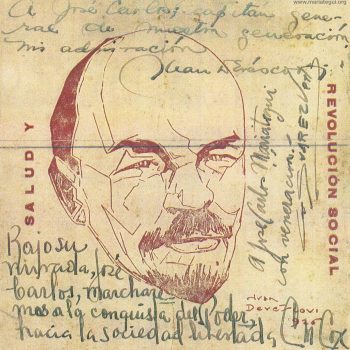 www.mariategui.org
A José Carlos, capitan gene-
ral de nuestra generación,
mi admiración
Juan
SALUD Y
REVOLUCIÓN SOCIAL
A José Carlos Mariategui
con veneración
Bajo su
mirada, José
Carlos, marchare-
mos a la conquista del Poder,
hacia la sociedad liberada
Cox